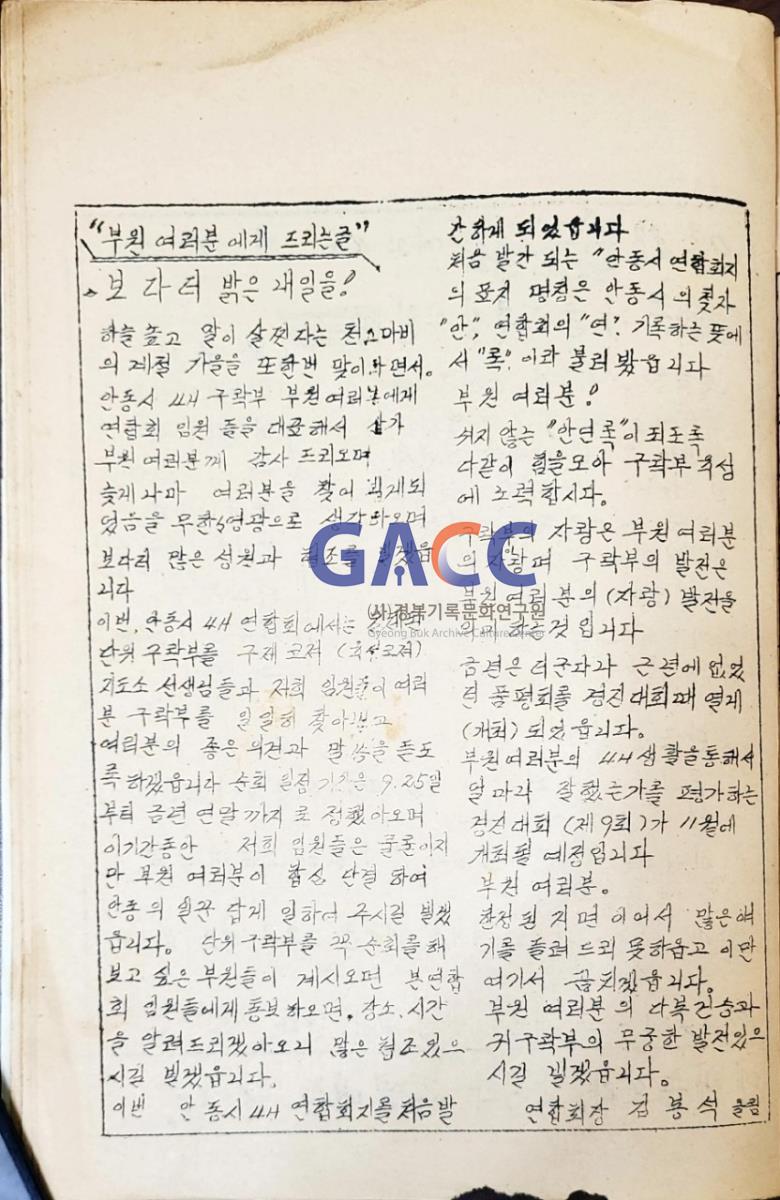 "부원 여러분에게 드리는글"
보다더 밝은 내일을!
하늘 높고 말이 살찐다는 천고마비
의 계절 가을을 또한번 맞이하면서.
안동시 4H 구락부 부원 여러분에게
연합회 임원 들을 대표해서 삼가
부원 여러분께 감사 드리오며
늦게나마 여러분을 찾아 뵙게되
었음을 무한한 영광으로 생각하오며
보다더 많은 성원과 협조를 빌겠읍
니다
이번, 안동시 4H 연합회에서는
단위 구락부를 구제코져 (육성코져)
지도소 선생님들과 저희 임원들이 여러
분 구락부를 일일히 찾아뵙고
여러분의 좋은 의견과 말씀을 듣도
록 하겠읍니다 순회 일정 기간은 9.25일
부터 금년 연말까지로 정했아오며
이기간동안 저희 임원들은 물론이지
만 부원 여러분이 합심 단결 하여
안동의 일꾼 답게 일하여 주시길 빌겠
읍니다. 단위구락부를 꼭 순회를 해
보고 싶은 부원들이 계시오면 본연합
회 임원들에게 통보하오면. 장소. 시간
을 알려드리겠아오니 많은 협조있으
시길 빌겠읍니다.
이번 안동시 4H 연합회지를 처음발
간하게 되었읍니다
처음 발간 되는 "안동시 연합회지
의 표지 명칭은 안동시의 첫자
"안", 연합회의 "연". 기록하는 뜻에
서 "록". 이라 불러 봤읍니다
부원 여러분!
쉬지 않는 "안연록"이 되도록
다같이 힘을모아 구락부 육성
에 노력합시다.
구락부의 자랑은 부원 여러분
의 자랑며 구락부의 발전은
부원 여러분의 (자랑) 발전을
것 입니다
금년은 더군다나 근년에 없었
던 품평회를 경진대회때 열게
(개최) 되었읍니다.
부원여러분의 4H생활을통해서
얼마나 잘했는가를 평가하는
경진대회 (제9회)가 11월에
개최될 예정입니다
부원 여러분.
한정된 지면 이어서 많은얘
기를 들려 드리 못하옵고 이만
여기서 끝치겠읍니다.
부원 여러분의 다복건승과
귀구락부의 무궁한 발전있으
시길 빌겠읍니다.
연합회장 김봉석 올림
GACC
(사)경북기록문화연구원
Gyeong Buk Archive Culture Center